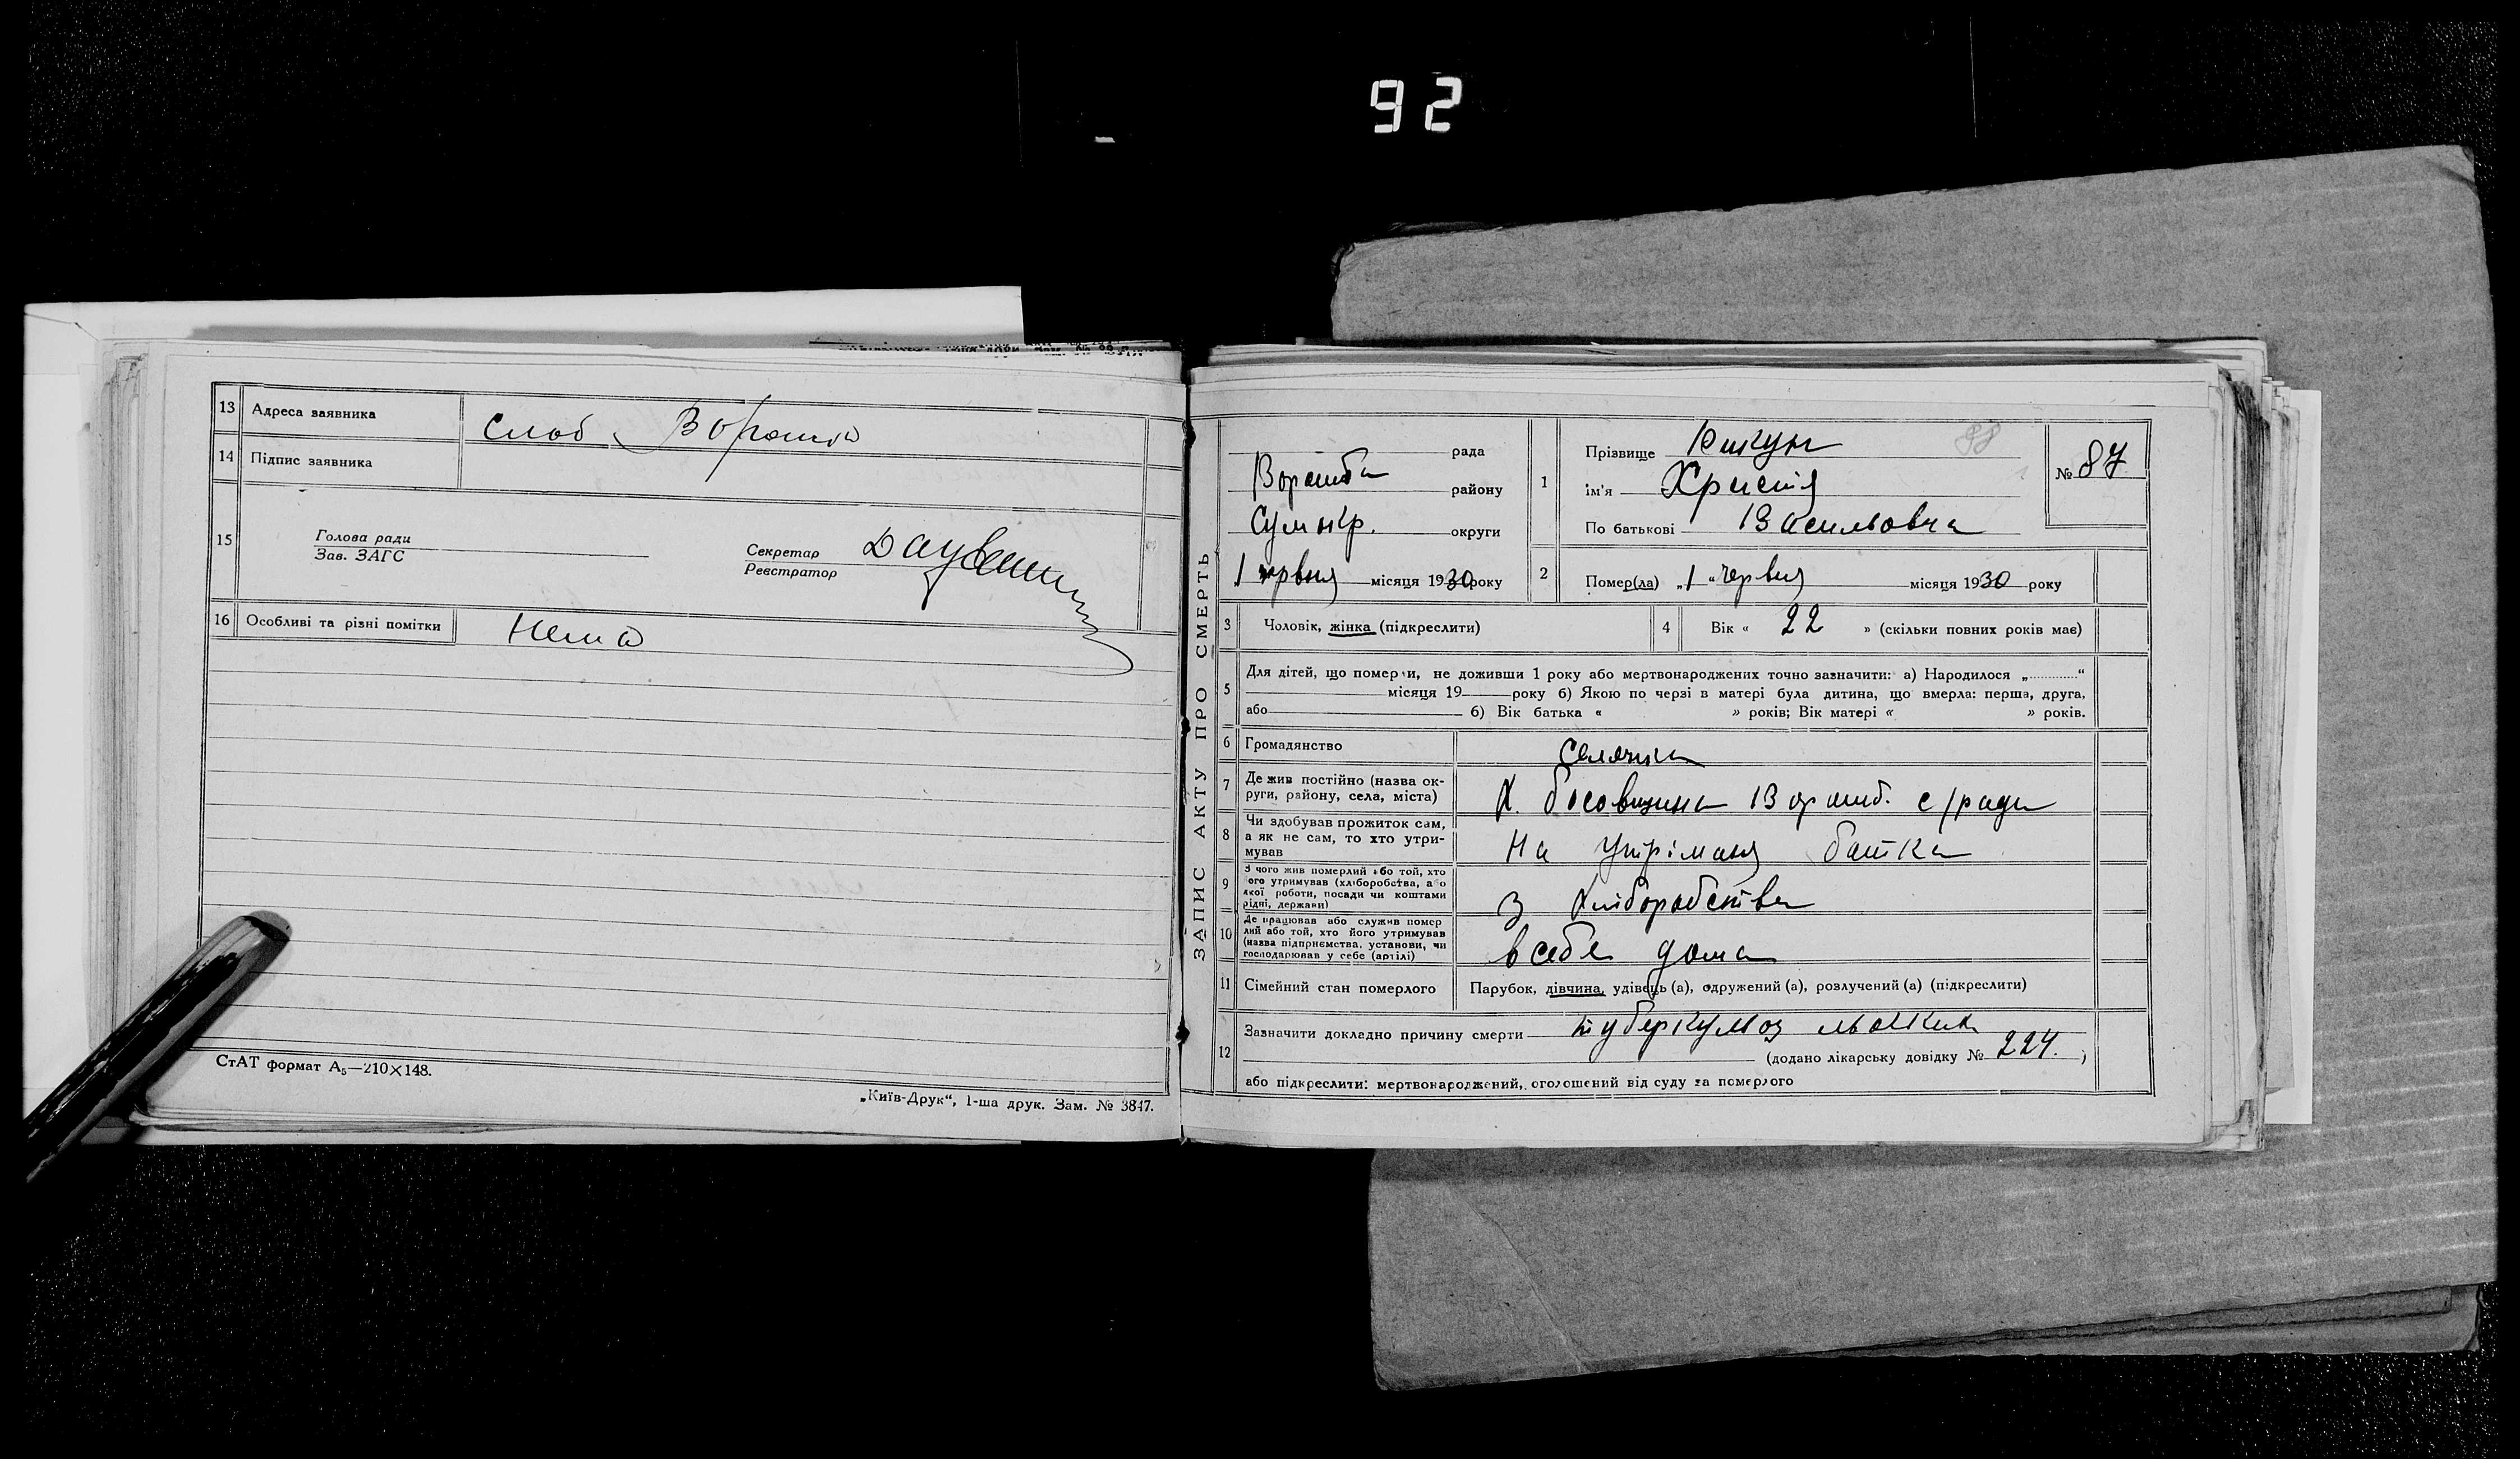 92
13 Адреса заявника
Слоб. Ворожба
14 Підпис заявника
15
Голова ради
Зав. ЗАГС
Секретар
Реєстратор
16 Особливі та різні помітки
Нема
СтАТ формат А₅—210×148.
„Київ-Друк“, 1-ша друк. Зам. № 3847.
ЗАПИС АКТУ ПРО СМЕРТЬ
рада
Ворожба району
Сумокр. округи
1 червня місяця 1930 року
1
Прізвище
88
ім'я Христя
По батькові Васильовна
№ 87
2 Помер(ла) „1“ червня місяця 1930 року
3 Чоловік, жінка (підкреслити)
4 Вік « 22 » (скільки повних років має)
5 Для дітей, що померли, не доживши 1 року або мертвонароджених точно зазначити: а) Народилося „............“
місяця 19 року б) Якою по черзі в матері була дитина, що вмерла: перша, друга,
або б) Вік батька « » років; Вік матері « » років.
6 Громадянство
селянка
7 Де жив постійно (назва ок-
руги, району, села, міста)
х. Босовщина Ворожб. с/ради
8 Чи здобував прожиток сам,
а як не сам, то хто утри-
мував
на утріманя батка
9 З чого жив померлий або той, хто
його утримував (хліборобства, або
якої роботи, посади чи коштами
рідні, держави)
з хліборобства
10 Де працював або служив помер
лий або той, хто його утримував
(назва підприємства, установи, чи
господарював у себе (артілі)
в себе дома
11 Сімейний стан померлого
Парубок, дівчина, удівець (а), одружений (а), розлучений (а) (підкреслити)
12 Зазначити докладно причину смерти туберкульоз
(додано лікарську довідку № 224. )
або підкреслити: мертвонароджений, оголошений від суду за померлого